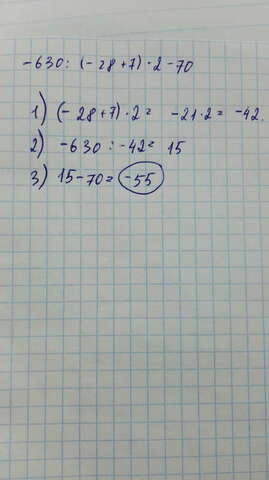 -630: (-28+7)·2-70
1) (-28+7)·2= -21·2= -42.
2) -630 : -42= 15
3) 15-70= -55